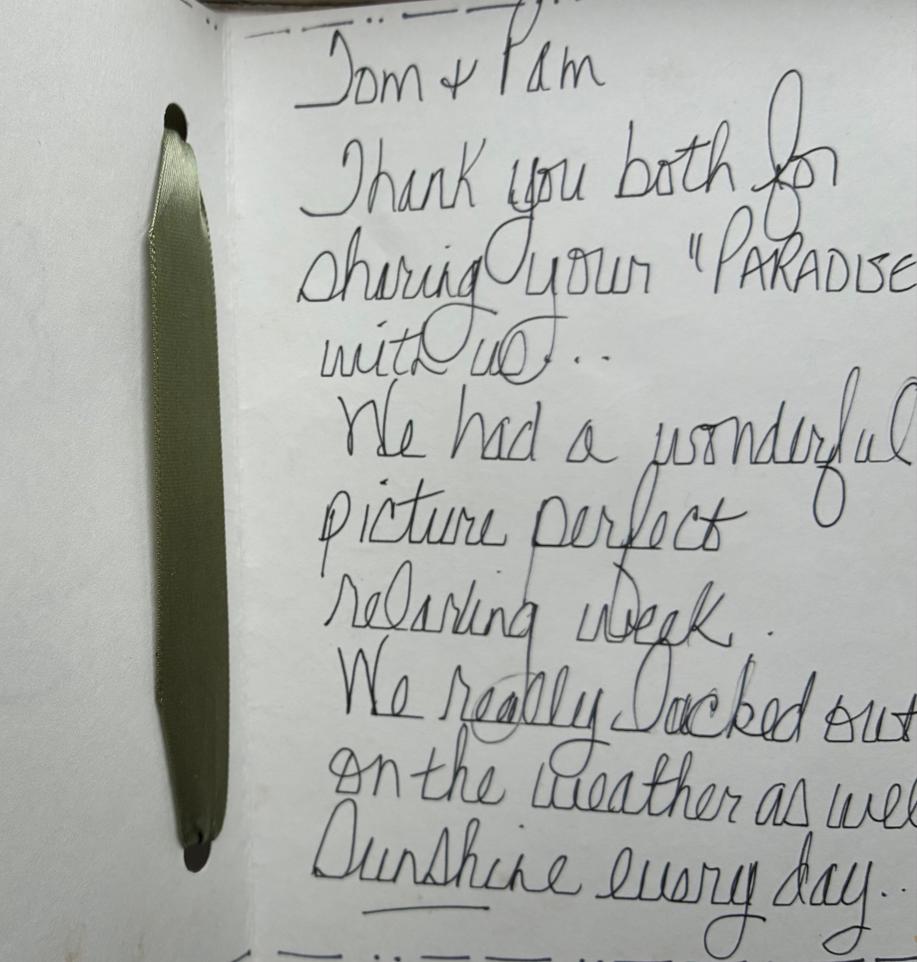 Tom & Pam
Thank you both for
sharing your "PARADISE
with us...
We had a wonderful
picture perfect
relaxing week.
We really lucked out
on the weather as well
Sunshine every day..